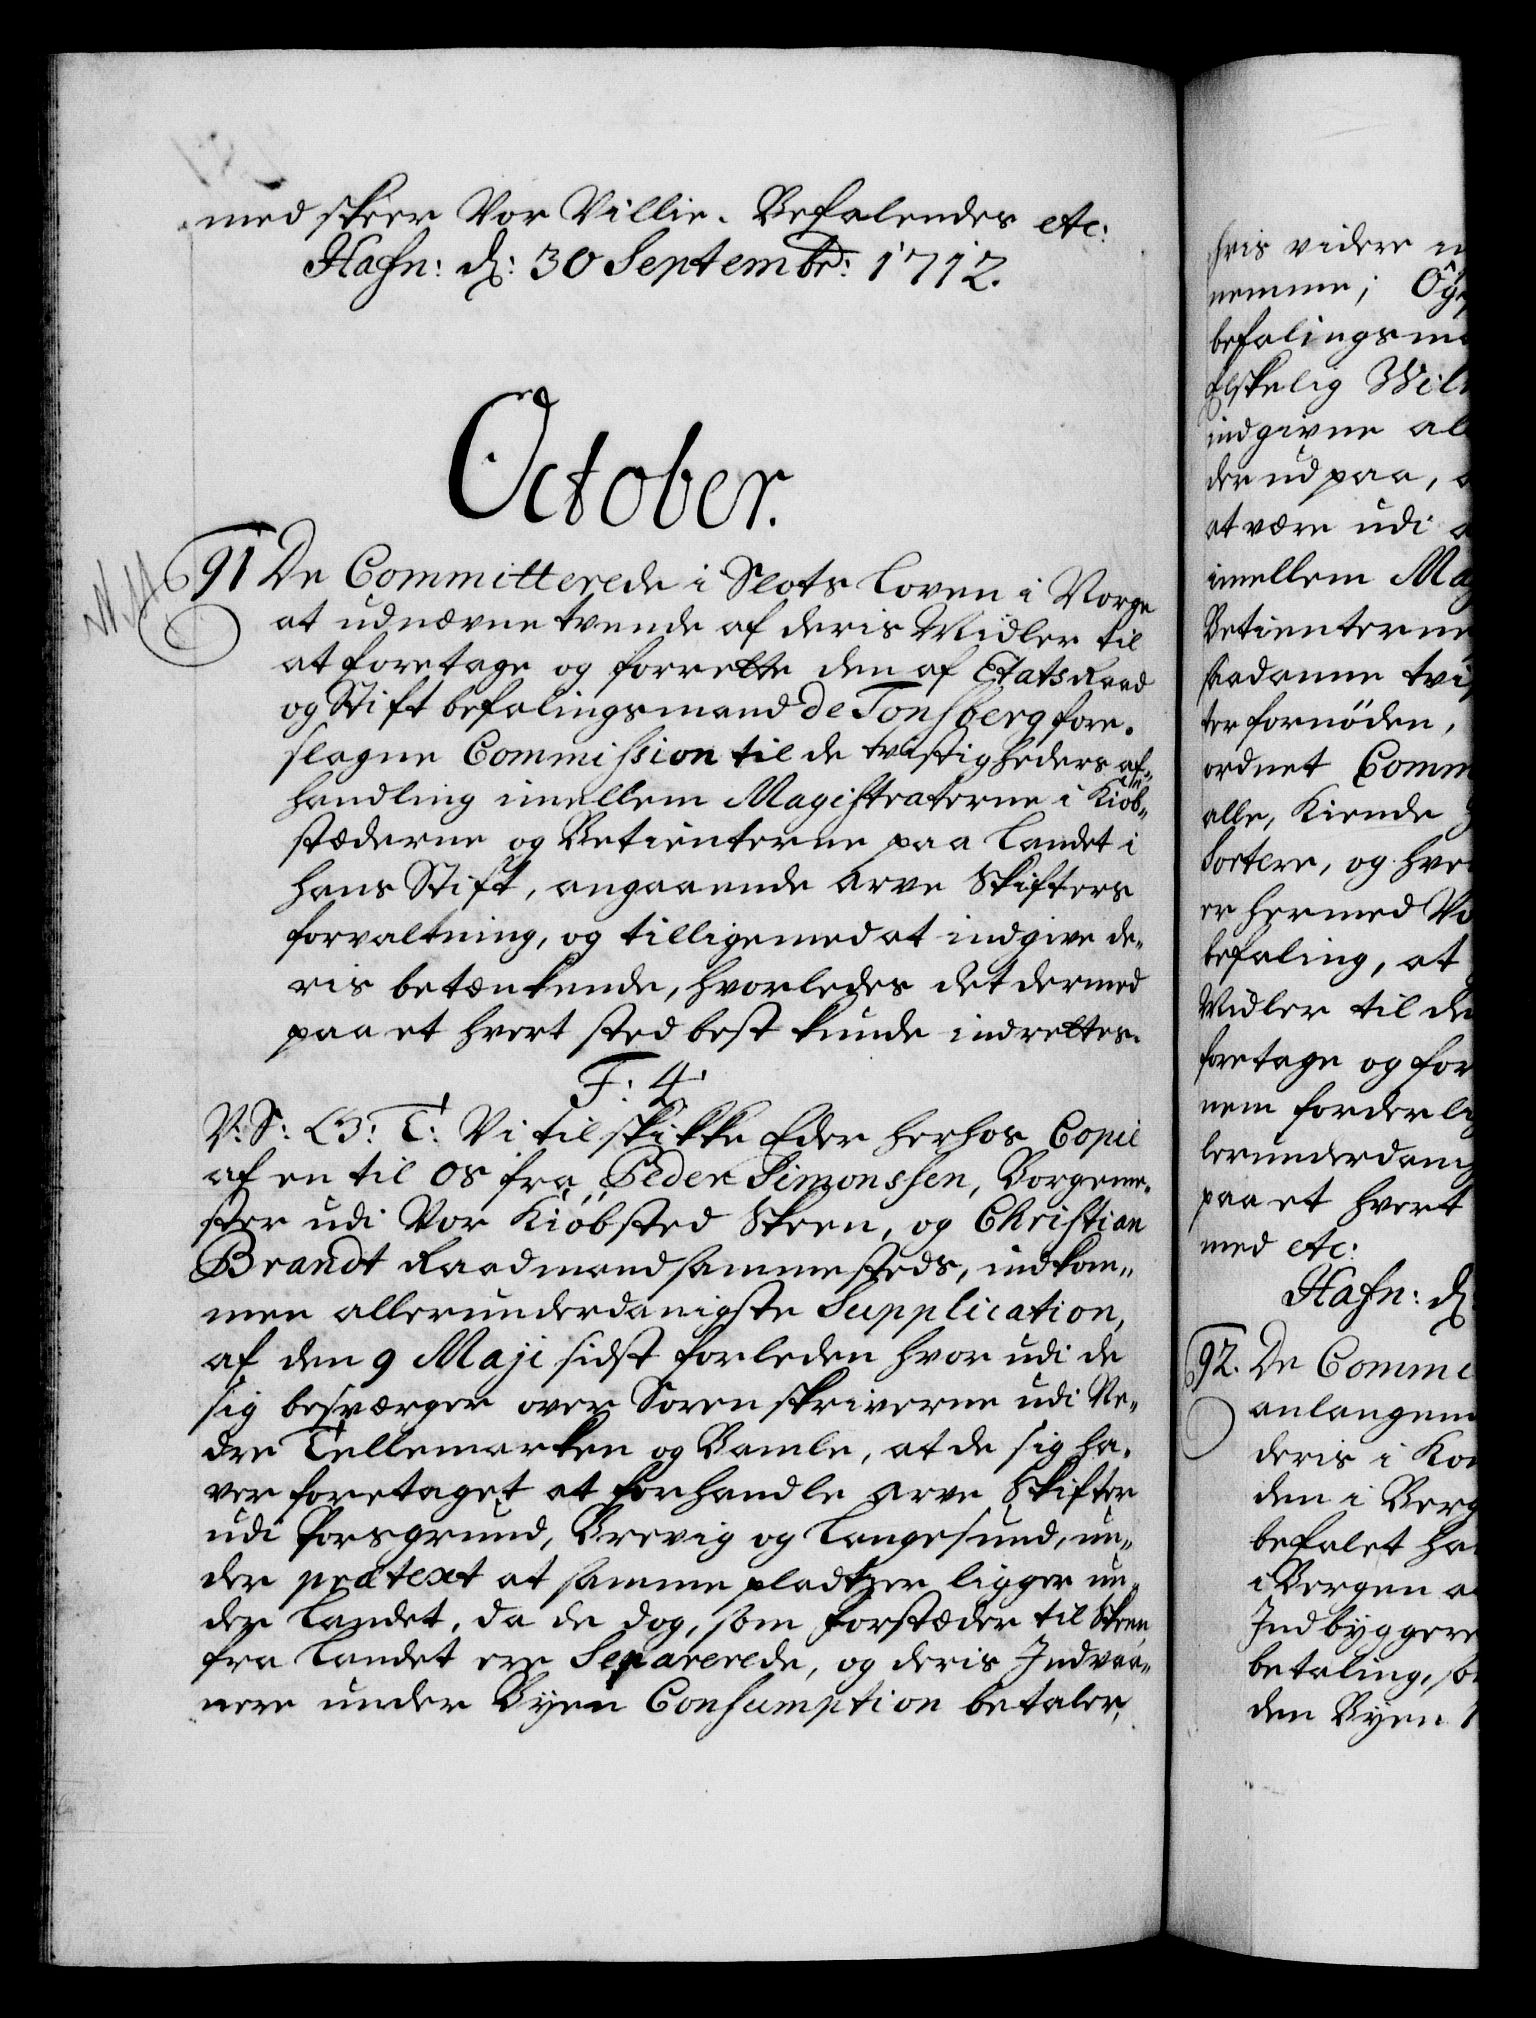 med skeer Vor Villie. Befalendes etc:
Hafn: d: 30 Septembr: 1712.
October.
91 De Committerede i Slots Loven i Norge
at udnævne tvende af deris Midler til
at foretage og forrette den af Etats Raad
og Stift befalingsmand de Tonsberg fore-
slagne Commission til de tvistigheders af-
handling imellem Magistraterne i Kiøb-
stæderne og Betienterne paa Landet i
hans Stift, angaaende Arve Skifters
forvaltning, og tilligemed at indgive de-
ris betænkende, hvorledes det dermed
paa et hvert sted best kunde indrettes.
F: 4.
V: S: G: T: Vi tilskikke Eder herhos Copie
af en til Os fra Peder Simonssen, Borgeme-
ster udi Vor Kiøbsted Skeen, og Christian
Brandt Raadmand sammesteds, indkom-
men allerunderdanigste Supplication,
af den 9 Maji sidst forleden hvor udi de
sig besværger over Sorenskriverne udi Ne-
dre Tellemarken og Bamle, at de sig ha-
ver foretaget at forhandle Arve Skifter
udi Porsgrund, Brevig og Langesund, un-
der prætext at samme pladtzer ligger un-
der Landet, da de dog, som forstæder til Skeen
fra Landet ere Separerede, og deris Indvaa-
nere under Byen Consumption betaler,
hvis videre
nemme;
befalingsm
Elskelig Wil
indgivne al
der ud paa,
at være udi
imellem Mag
Betienterne
saadanne tvi
ter fornöden,
ordnet Comm
alle, Kiende
Sortere, og hve
er hermed Vo
befaling, at
Midler til de
foretage og for
nem forderlig
lerunderdan
paa et hvert
med etc:
Hafn: d:
92. De Comme
anlangen
deris i Ko
den i Berg
befalet ha
i Bergen a
Indbyggere
betaling, so
den Byen